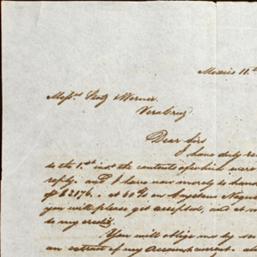 Mexico 11th
Messrs. Werner
Vera Cruz
Dear Sirs
I have duly re
to the 1st inst. the contents of which were
reply, and I have now merely to hand
of $2176. at 60 D/s on
you will please get accepted, and at
to my credit.
You will oblige me by
an extract of my Account current